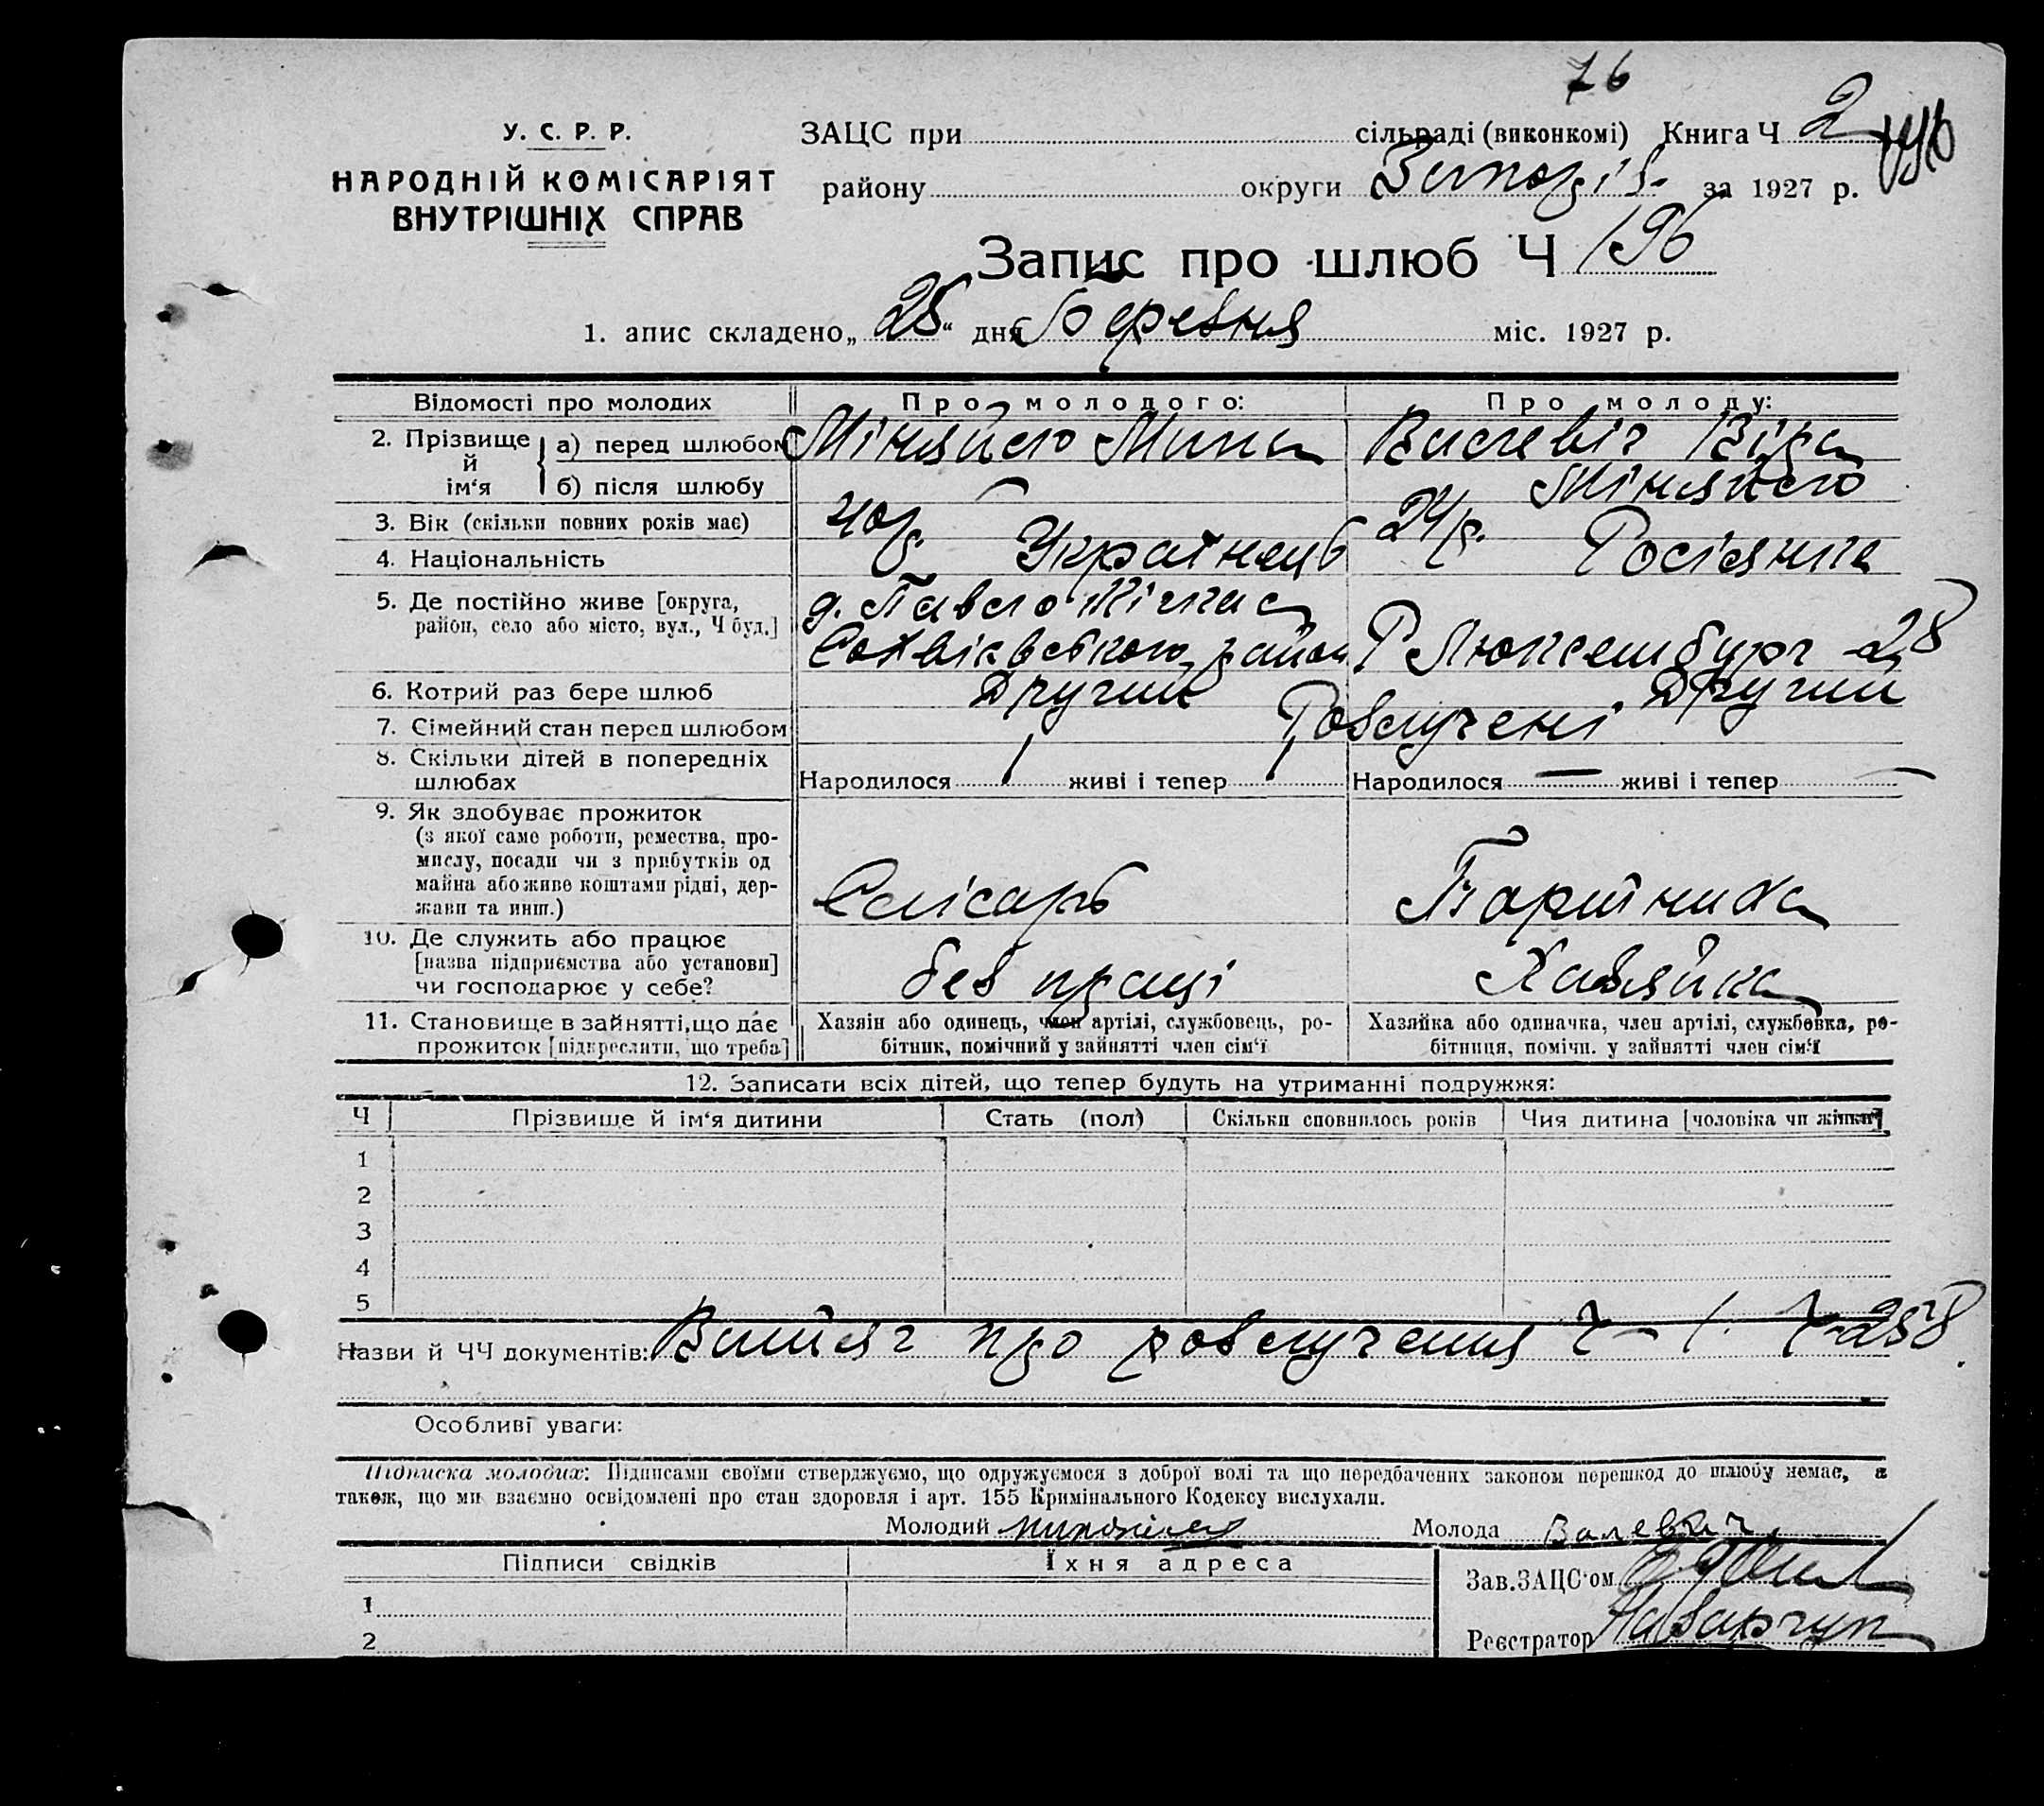 76
У. С. Р. Р.
НАРОДНІЙ КОМІСАРІЯТ
ВНУТРІШНІХ СПРАВ
ЗАЦС при сільраді (виконкомі) Книга Ч 2
району округи за 1927 р.
Запис про шлюб Ч 196
1. апис складено „ 28 “ дня Березня міс. 1927 р.
Відомості про молодих Про молодого: Про молоду:
2. Прізвище й ім‘я
а) перед шлюбом Міняйло Мина Віра
б) після шлюбу — Міняйло
3. Вік (скільки повних років має) 40 р. 24 р.
4. Національність Українець Росіянка
5. Де постійно живе [округа, район, село або місто, вул., Ч буд.]
д. Павло
район Р Люксембург 28
6. Котрий раз бере шлюб Другий Другий
7. Сімейний стан перед шлюбом Розлучені
8. Скільки дітей в попередніх шлюбах
Народилося 1 живі і тепер 1 Народилося — живі і тепер —
9. Як здобуває прожиток
(з якої саме роботи, ремества, про-
мислу, посади чи з прибутків од
майна або живе коштами рідні, дер-
жави та инш.)
Слісарь
10. Де служить або працює
[назва підприємства або установи]
чи господарює у себе?
без праці Хазяйка
11. Становище в зайнятті, що дає
прожиток [підкреслити, що треба]
Хазяін або одинець, член артілі, службовець, ро-
бітник, помічний у зайнятті член сім‘ї
Хазяйка або одиначка, член артілі, службовка, ро-
бітниця, помічн. у зайнятті член сім‘ї
12. Записати всіх дітей, що тепер будуть на утриманні подружжя:
Ч Прізвище й ім‘я дитини Стать (пол) Скільки сповнилось років Чия дитина [чоловіка чи жінки]
1
2
3
4
5
Назви й ЧЧ документів: Витяг про розлучення Ч – 1. Ч-258
Особливі уваги:
Підписка молодих: Підписами своїми стверджуємо, що одружуємося з доброї волі та що передбачених законом перешкод до шлюбу немає, а
також, що ми взаємно освідомлені про стан здоровля і арт. 155 Кримінального Кодексу вислухали.
Молодий Молода
Підписи свідків Їхня адреса
Зав. ЗАЦС‘ом
1
2
Реєстратор